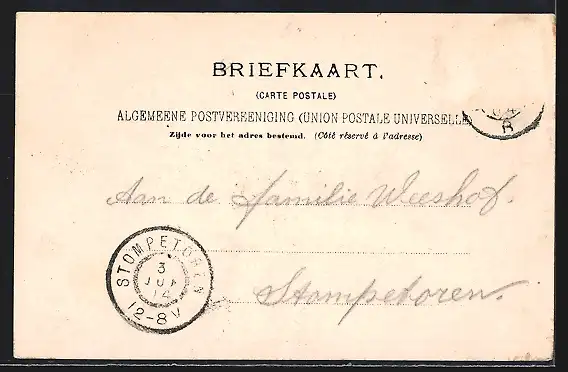 BRIEFKAART.
(CARTE POSTALE)
ALGEMEENE POSTVEREENIGING (UNION POSTALE UNIVERSELLE)
Zijde voor het adres bestemd. (Côté réservé à l'adresse)
Aan de familie Weeshof.
STOMPETOREN
3
14
12-8V
Stompetoren.